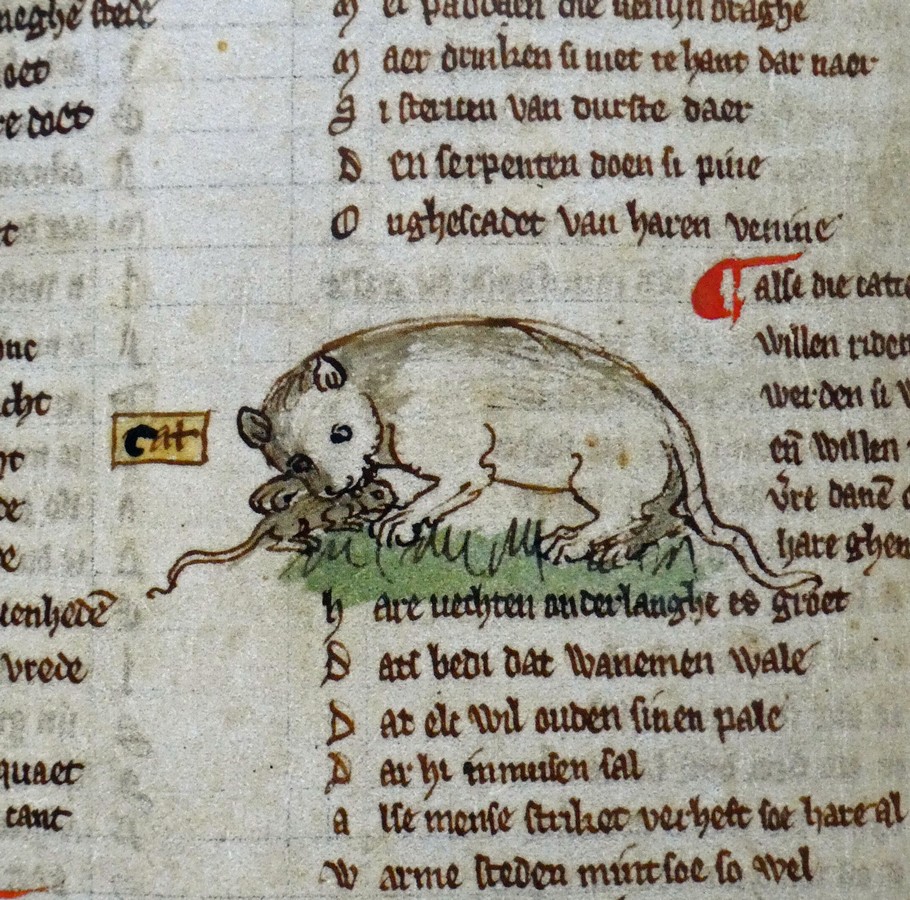 neghe stede
oet
re doet
t
onc
cht
ht
de
e
uenhedē
vrede
quaet
cant
cat
M et padden die uenijn draghe
M aer drinken si niet te hant dar naer
S i steruen van durste daer
D en serpenten doen si pine
O nghescadet van haren venine
¶ alse die catte
willen riden
werden si w
eñ willen
hare ghen
h are uechten onderlanghe es groet
D ats bedi dat wanemen wale
D at elc wil ouden sinen pale
D ar hi inmusen sal
a lse mense striket verheft soe hare al
w arme steden mint soe so wel